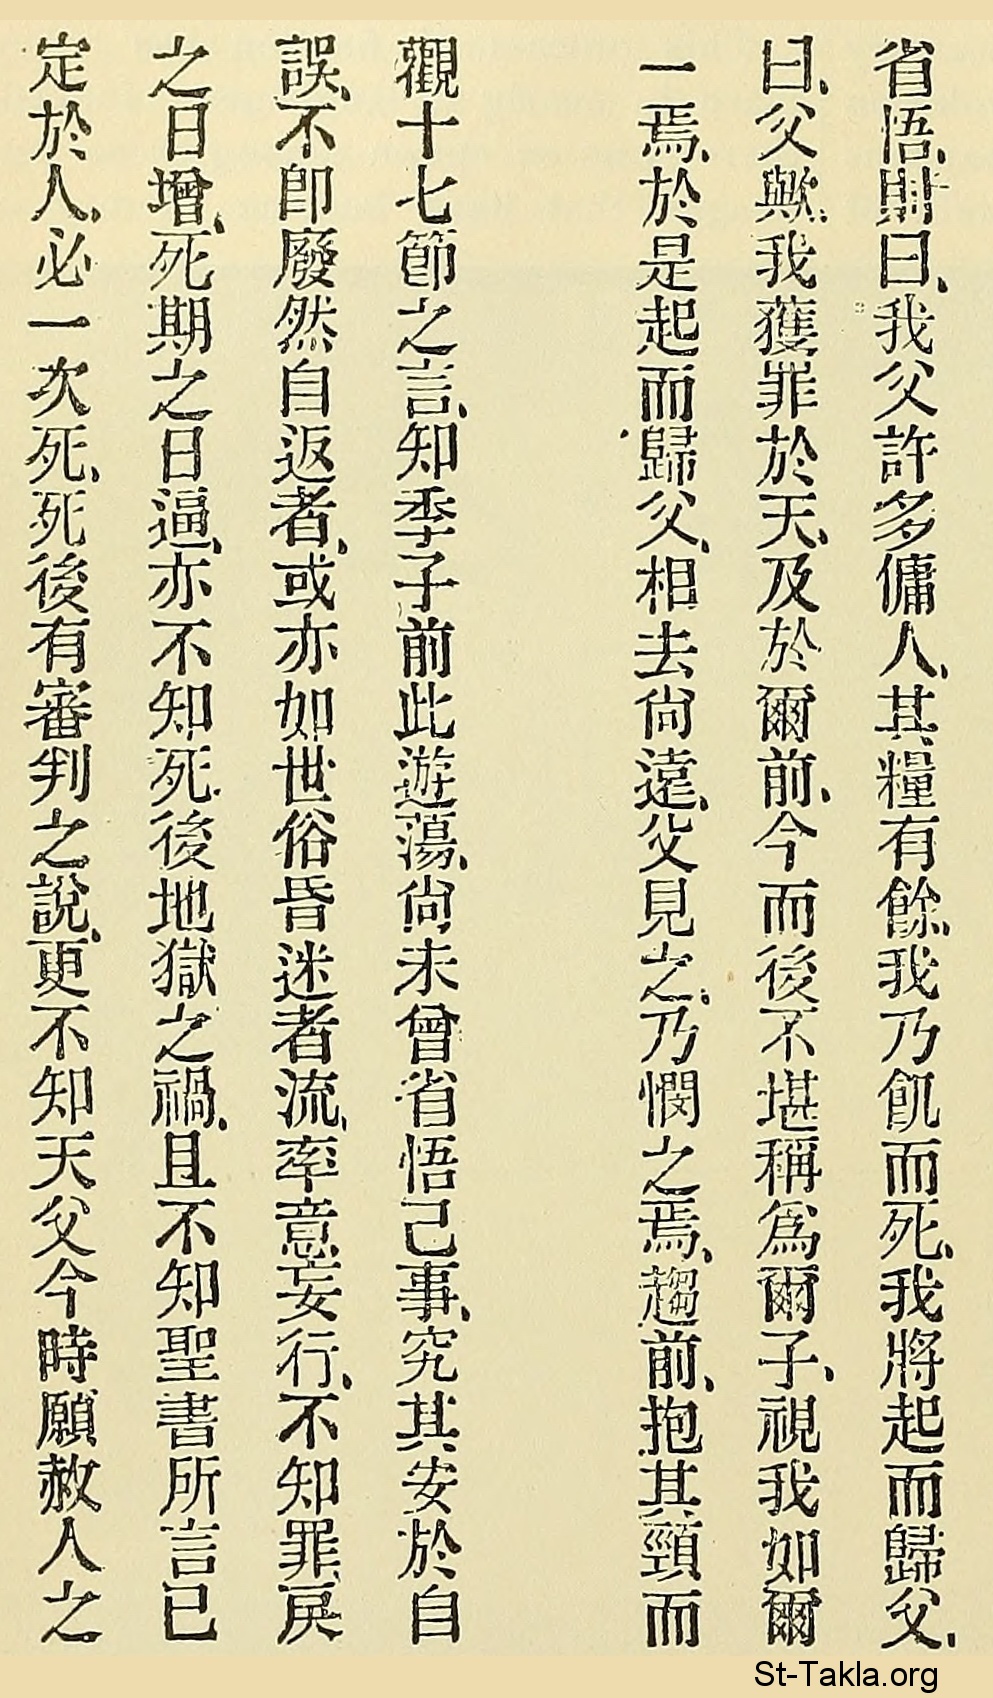 省悟、則曰、我父許多傭人、其糧有餘、我乃飢而死、我將起而歸父、
曰、父歟、我獲罪於天、及於爾前、今而後不堪稱爲爾子、視我如爾
一焉、於是起而歸父、相去尙遠、父見之、乃憫之焉、趨前、抱其頸而
觀十七節之言、知季子前此遊蕩、尙未曾省悟己事、究其安於自
誤、不卽廢然自返者、或亦如世俗昏迷者流、率意妄行、不知罪戾
之日增、死期之日逼、亦不知死後地獄之禍、且不知聖書所言已
定於人、必一次死、死後有審判之說、更不知天父今時願赦人之
St-Takla.org